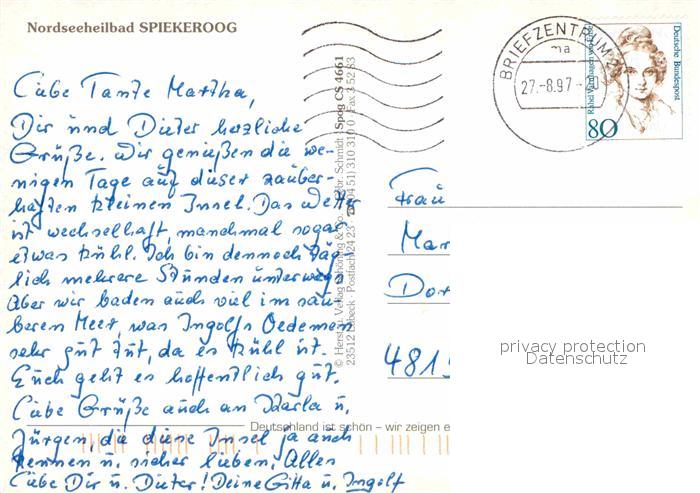 Nordseeheilbad SPIEKEROOG
Liebe Tante Martha,
Dir und Dieter herzliche
Grüße. Wir genießen die we-
nigen Tage auf dieser zauber-
haften kleinen Insel. Das Wetter
ist wechselhaft, manchmal sogar
etwas kühl. Ich bin dennoch täg-
lich mehrere Stunden unterwegs
Aber wir baden auch viel im sau-
beren Meer, was Ingolfs Oedemen
sehr gut tut, da es kühl ist.
Euch geht es hoffentlich gut.
Liebe Grüße auch an Karla u.
Jürgen, die diese Insel ja auch
kennen u. sicher lieben. Alles
Liebe Dir u. Dieter! Deine Gitta u. Ingolf
Deutschland ist schön – wir zeigen e
© Herst. u. Verlag Schöning & Co. + Gebr. Schmidt Spog CS 4661
23512 Lübeck · Postfach 24 23 · (04 51) 310 310 0 · Fax 3 52 83
BRIEFZENTRUM
ma
27.-8.97
Deutsche Bundespost
Rahel Varnhagen von Ense
80
Frau
Mar
Dor
4815
privacy protection
Datenschutz